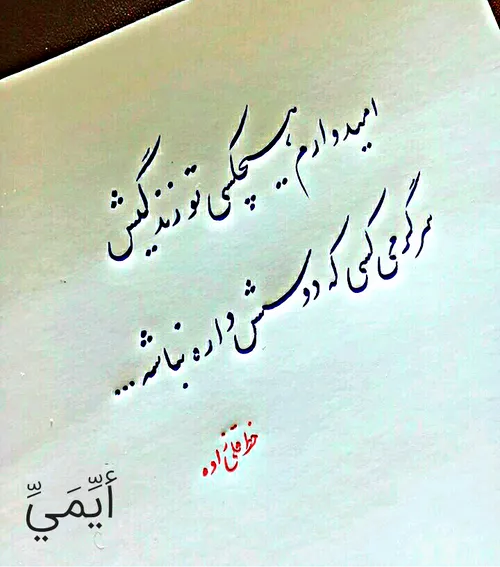 امیدوارم هیچکسی تو زندگیش
سرگرمی کسی که دوسش داره نباشه...
خط قلی زاده
أيِّمَيِّ